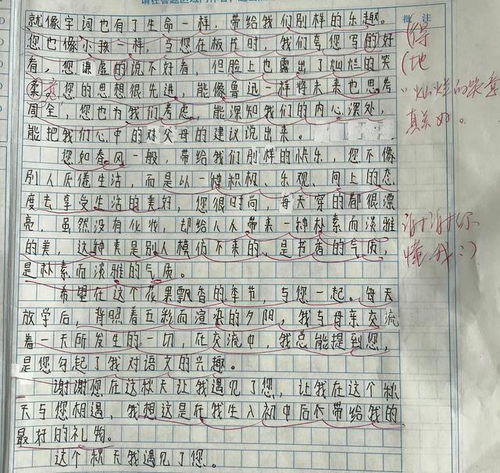 就像字词也有了生命一样，带给我们别样的乐趣。
您也像小孩一样，当您在板书时，我们夸您写的好
看，您谦虚的说不好看，但脸上也露出了灿烂的笑
您的思想很先进，能像鲁迅一样将未来也思考
周全，您也为我们考虑，能深知我们的内心深处，
能把我们心中的对父母的建议说出来。
您如春风一般，带给我们别样的快乐，您不像
别人厌倦生活，而是以一种积极、乐观、向上的态
度去享受生活的美好，您很时尚，每天穿的都很漂
亮，虽然没有化妆，却给人人带来一种朴素而淡雅
的美，这种美是别人模仿不来的，是书香的气质，
是朴素而淡雅的气质。
希望在这个花果飘香的季节，与您一起。每天
放学后，背照着五彩而渲染的夕阳，我与母亲交流
着一天所发生的一切，在交流中，我总能提到您，
是您勾起了我对语文的兴趣。
谢谢您在这秋天让我遇见了您，让我在这个秋
天与您相遇，我想这是在我生入初中后不带给我的
最好的礼物。
这个秋天我遇见了您。
批 注
(得
(地
灿烂的笑意
真美好。
谢谢你
懂我:)